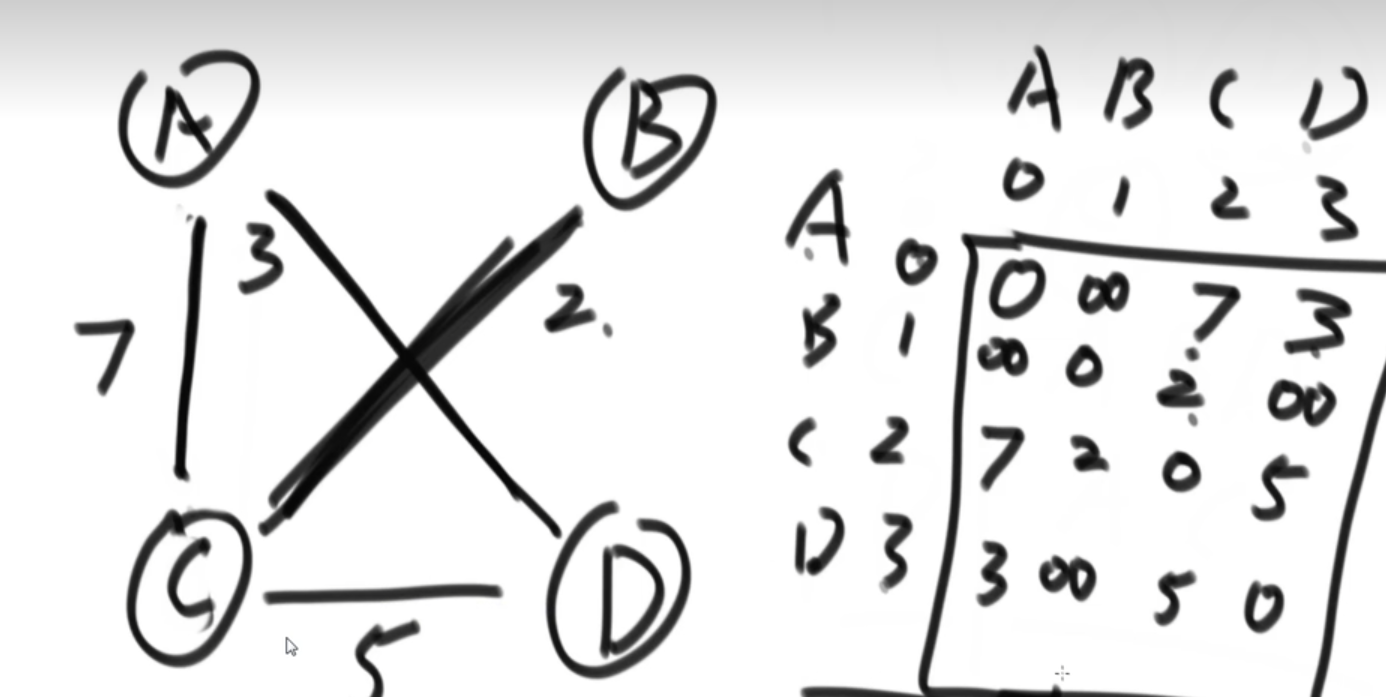 A B
3
7
2.
C D
5
A B C D
0 1 2 3
A 0 0 ∞ 7 3
B 1 ∞ 0 2 ∞
C 2 7 2 0 5
D 3 3 ∞ 5 0